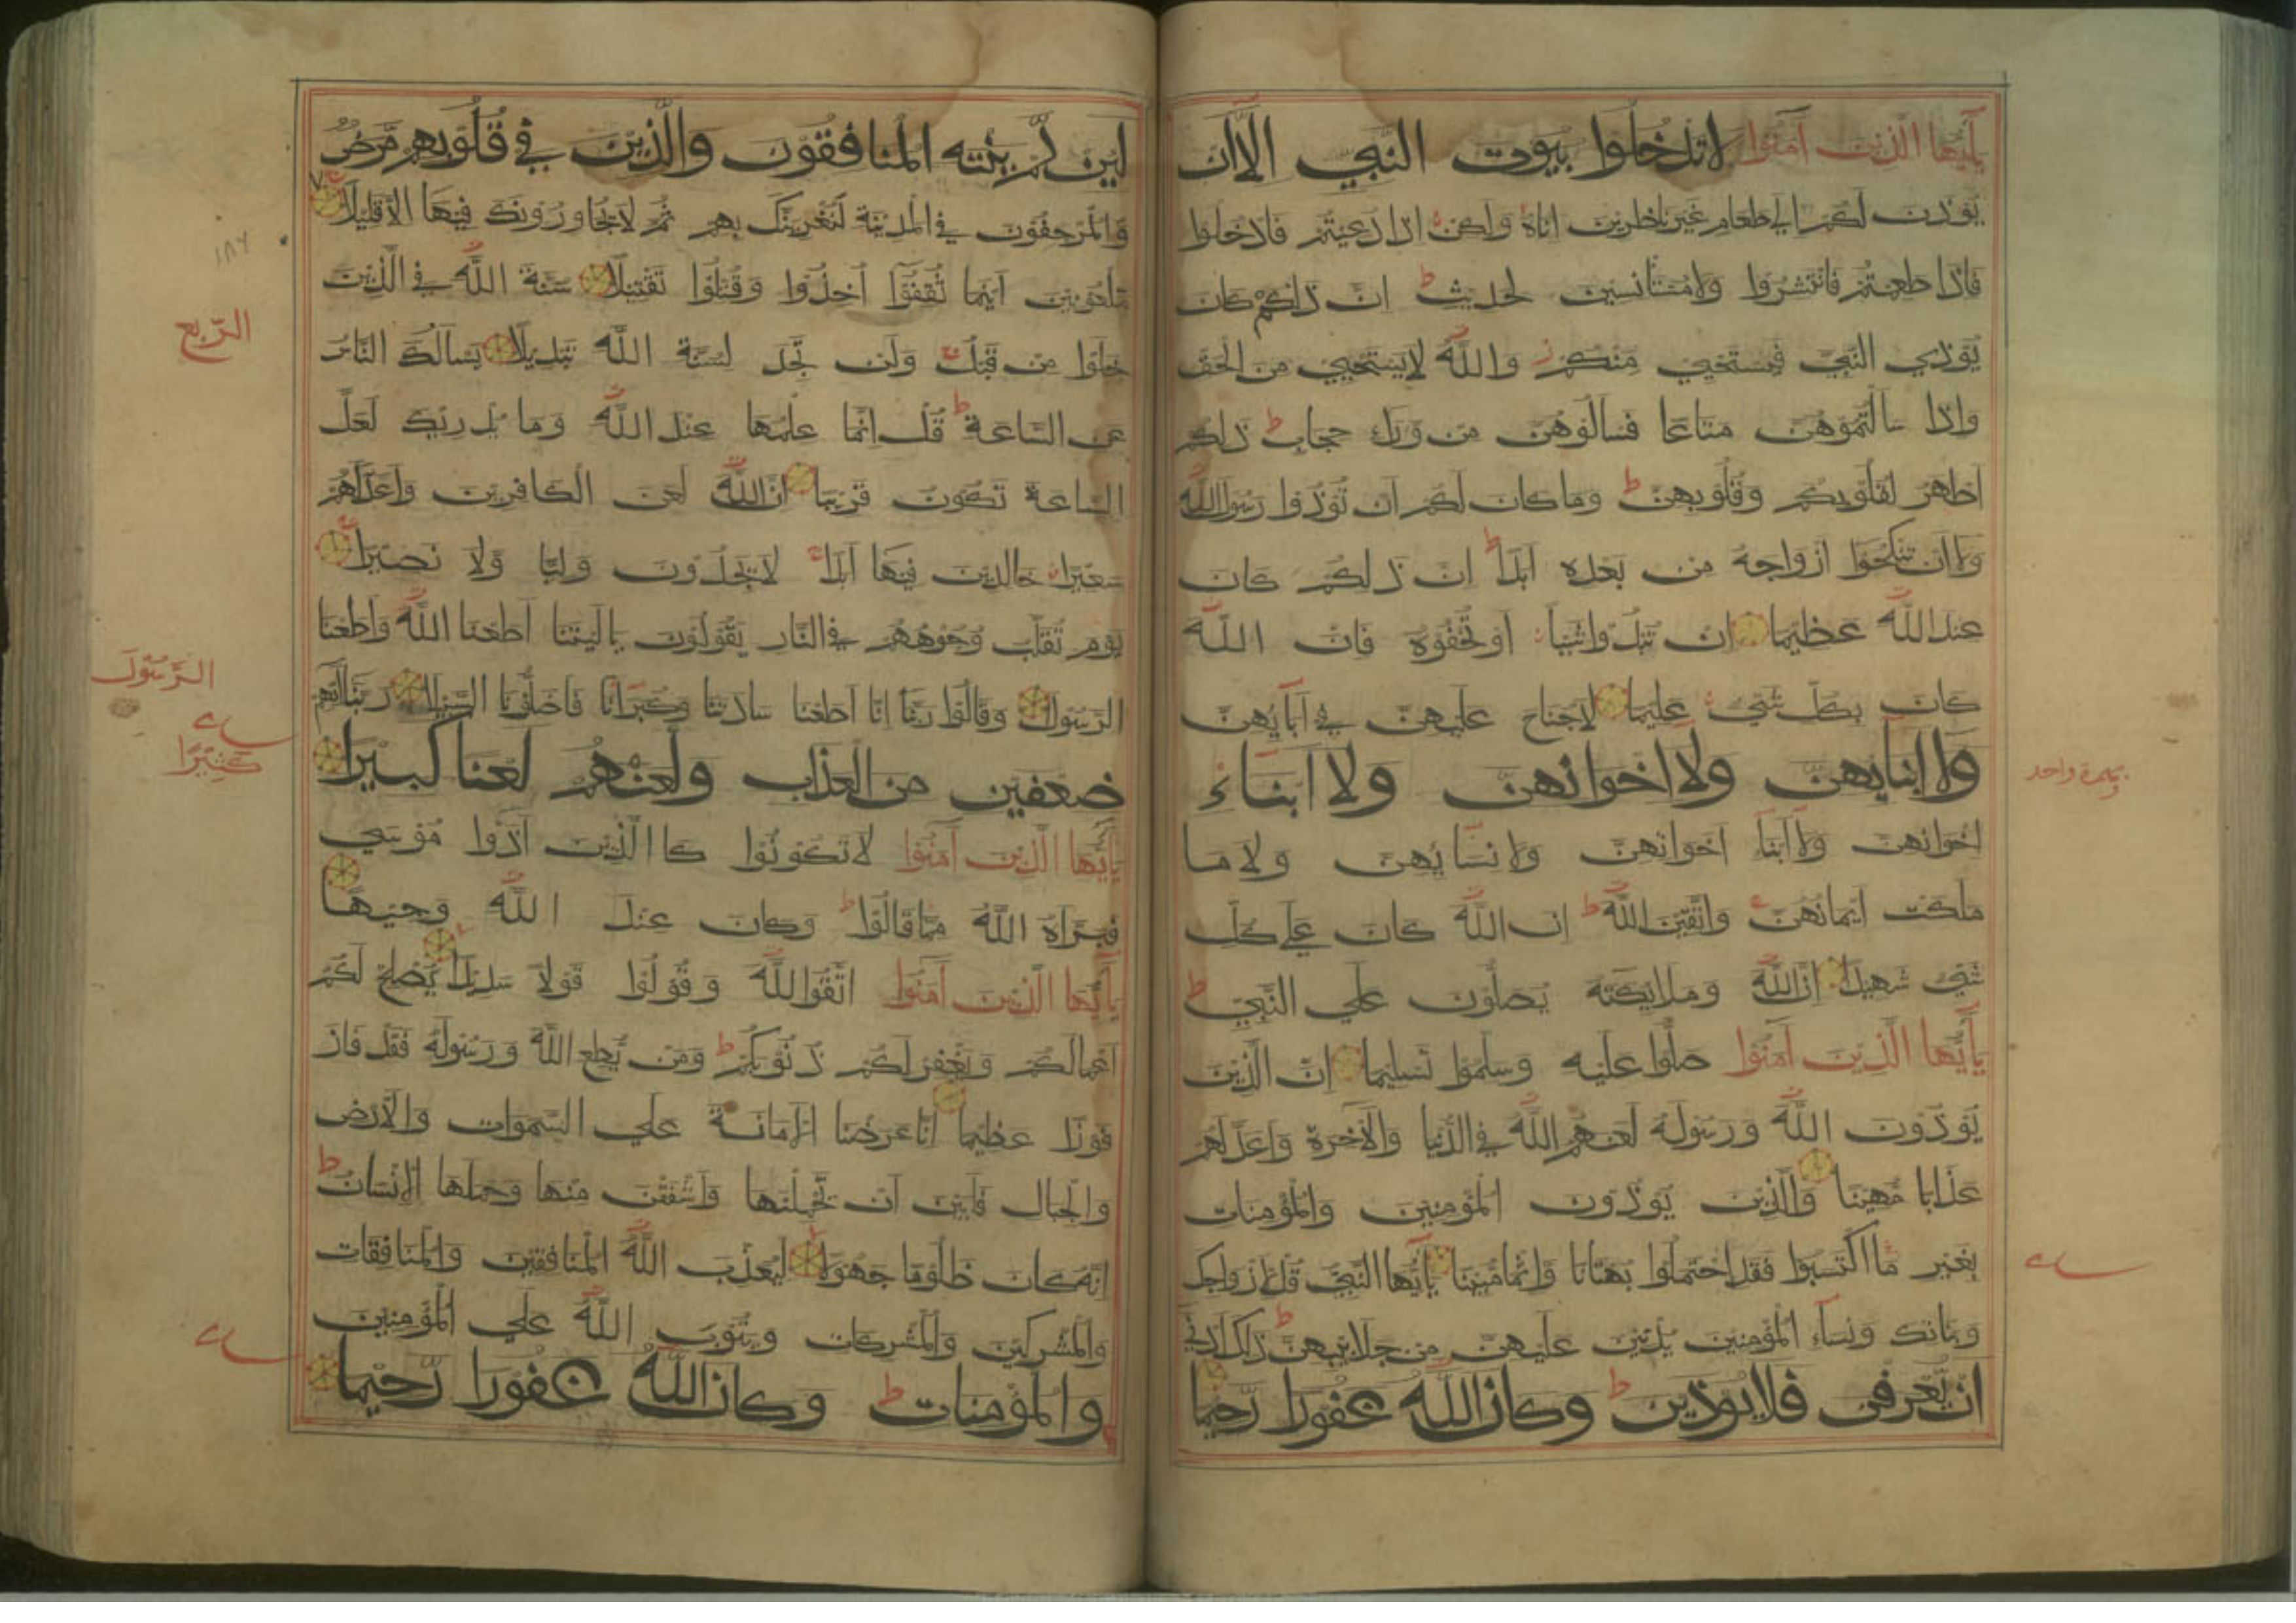 يأيها الذين آمنوا لا تدخلوا بيوت النبي الا ان
يؤذن لكم الي طعام غير ناظرين اناه ولكن اذا دعيتم فادخلوا
فاذا طعمتم فانتشروا ولا مستانسين لحديث ط ان ذلكم كان
يؤذي النبي فيستحيي منكم ز والله لا يستحيي من الحق
واذا سالتموهن متاعا فسالوهن من وراء حجاب ط ذلكم
اطهر لقلوبكم وقلوبهن ط وما كان لكم ان تؤذوا رسول الله
ولا ان تنكحوا ازواجه من بعده ابدا ط ان ذلكم كان
عند الله عظيما ان تبدوا شيئا او تخفوه فان الله
كان بكل شيء عليما لا جناح عليهن في آبآئهن
ولا ابنايهن ولا اخوانهن ولا ابناء
اخوانهن ولا ابنآ اخواتهن ولا نسآئهن ولا ما
ملكت ايمانهن واتقين الله ط ان الله كان علي كل
شيء شهيدا ان الله وملايكته يصلون علي النبي ط
يأيها الذين آمنوا صلوا عليه وسلموا تسليما ان الذين
يؤذون الله ورسوله لعنهم الله في الدنيا والآخرة واعد لهم
عذابا مهينا والذين يؤذون المؤمنين والمؤمنات
بغير ما اكتسبوا فقد احتملوا بهتانا واثما مبينا يأيها النبي قل لازواجك
وبناتك ونسآء المؤمنين يدنين عليهن من جلابيبهن ط ذلك ادني
ان يعرفن فلا يؤذين ط وكان الله غفورا رحيما
لين لم ينته المنافقون والذين في قلوبهم مرض
والمرجفون في المدينة لنغرينك بهم ثم لا يجاورونك فيها الا قليلا
ملعونين اينما ثقفوا اخذوا وقتلوا تقتيلا سنة الله في الذين
خلوا من قبل ولن تجد لسنة الله تبديلا يسالك الناس
عن الساعة ط قل انما علمها عند الله وما يدريك لعل
الساعة تكون قريبا ان الله لعن الكافرين واعد لهم
سعيرا خالدين فيها ابدا لا يجدون وليا ولا نصيرا
يوم تقلب وجوههم في النار يقولون يا ليتنا اطعنا الله واطعنا
الرسولا وقالوا ربنا انا اطعنا سادتنا وكبرآنا فاضلونا السبيلا ربنا آتهم
ضعفين من العذاب والعنهم لعنا كبيرا
يأيها الذين آمنوا لا تكونوا كاالذين آذوا موسي
فبرأه الله مما قالوا ط وكان عند الله وجيها
يأيها الذين آمنوا اتقوا الله وقولوا قولا سديدا يصلح لكم
اعمالكم ويغفر لكم ذنوبكم ط ومن يطع الله ورسوله فقد فاز
فوزا عظيما انا عرضنا الامانة علي السموات والارض
والجبال فابين ان يحملنها واشفقن منها وحملها الانسان ط
انه كان ظلوما جهولا ليعذب الله المنافقين والمنافقات
والمشركين والمشركات ويتوب الله علي المؤمنين
والمؤمنات ط وكان الله غفورا رحيما
١٨٦
الربع
الرسول
كثيرا